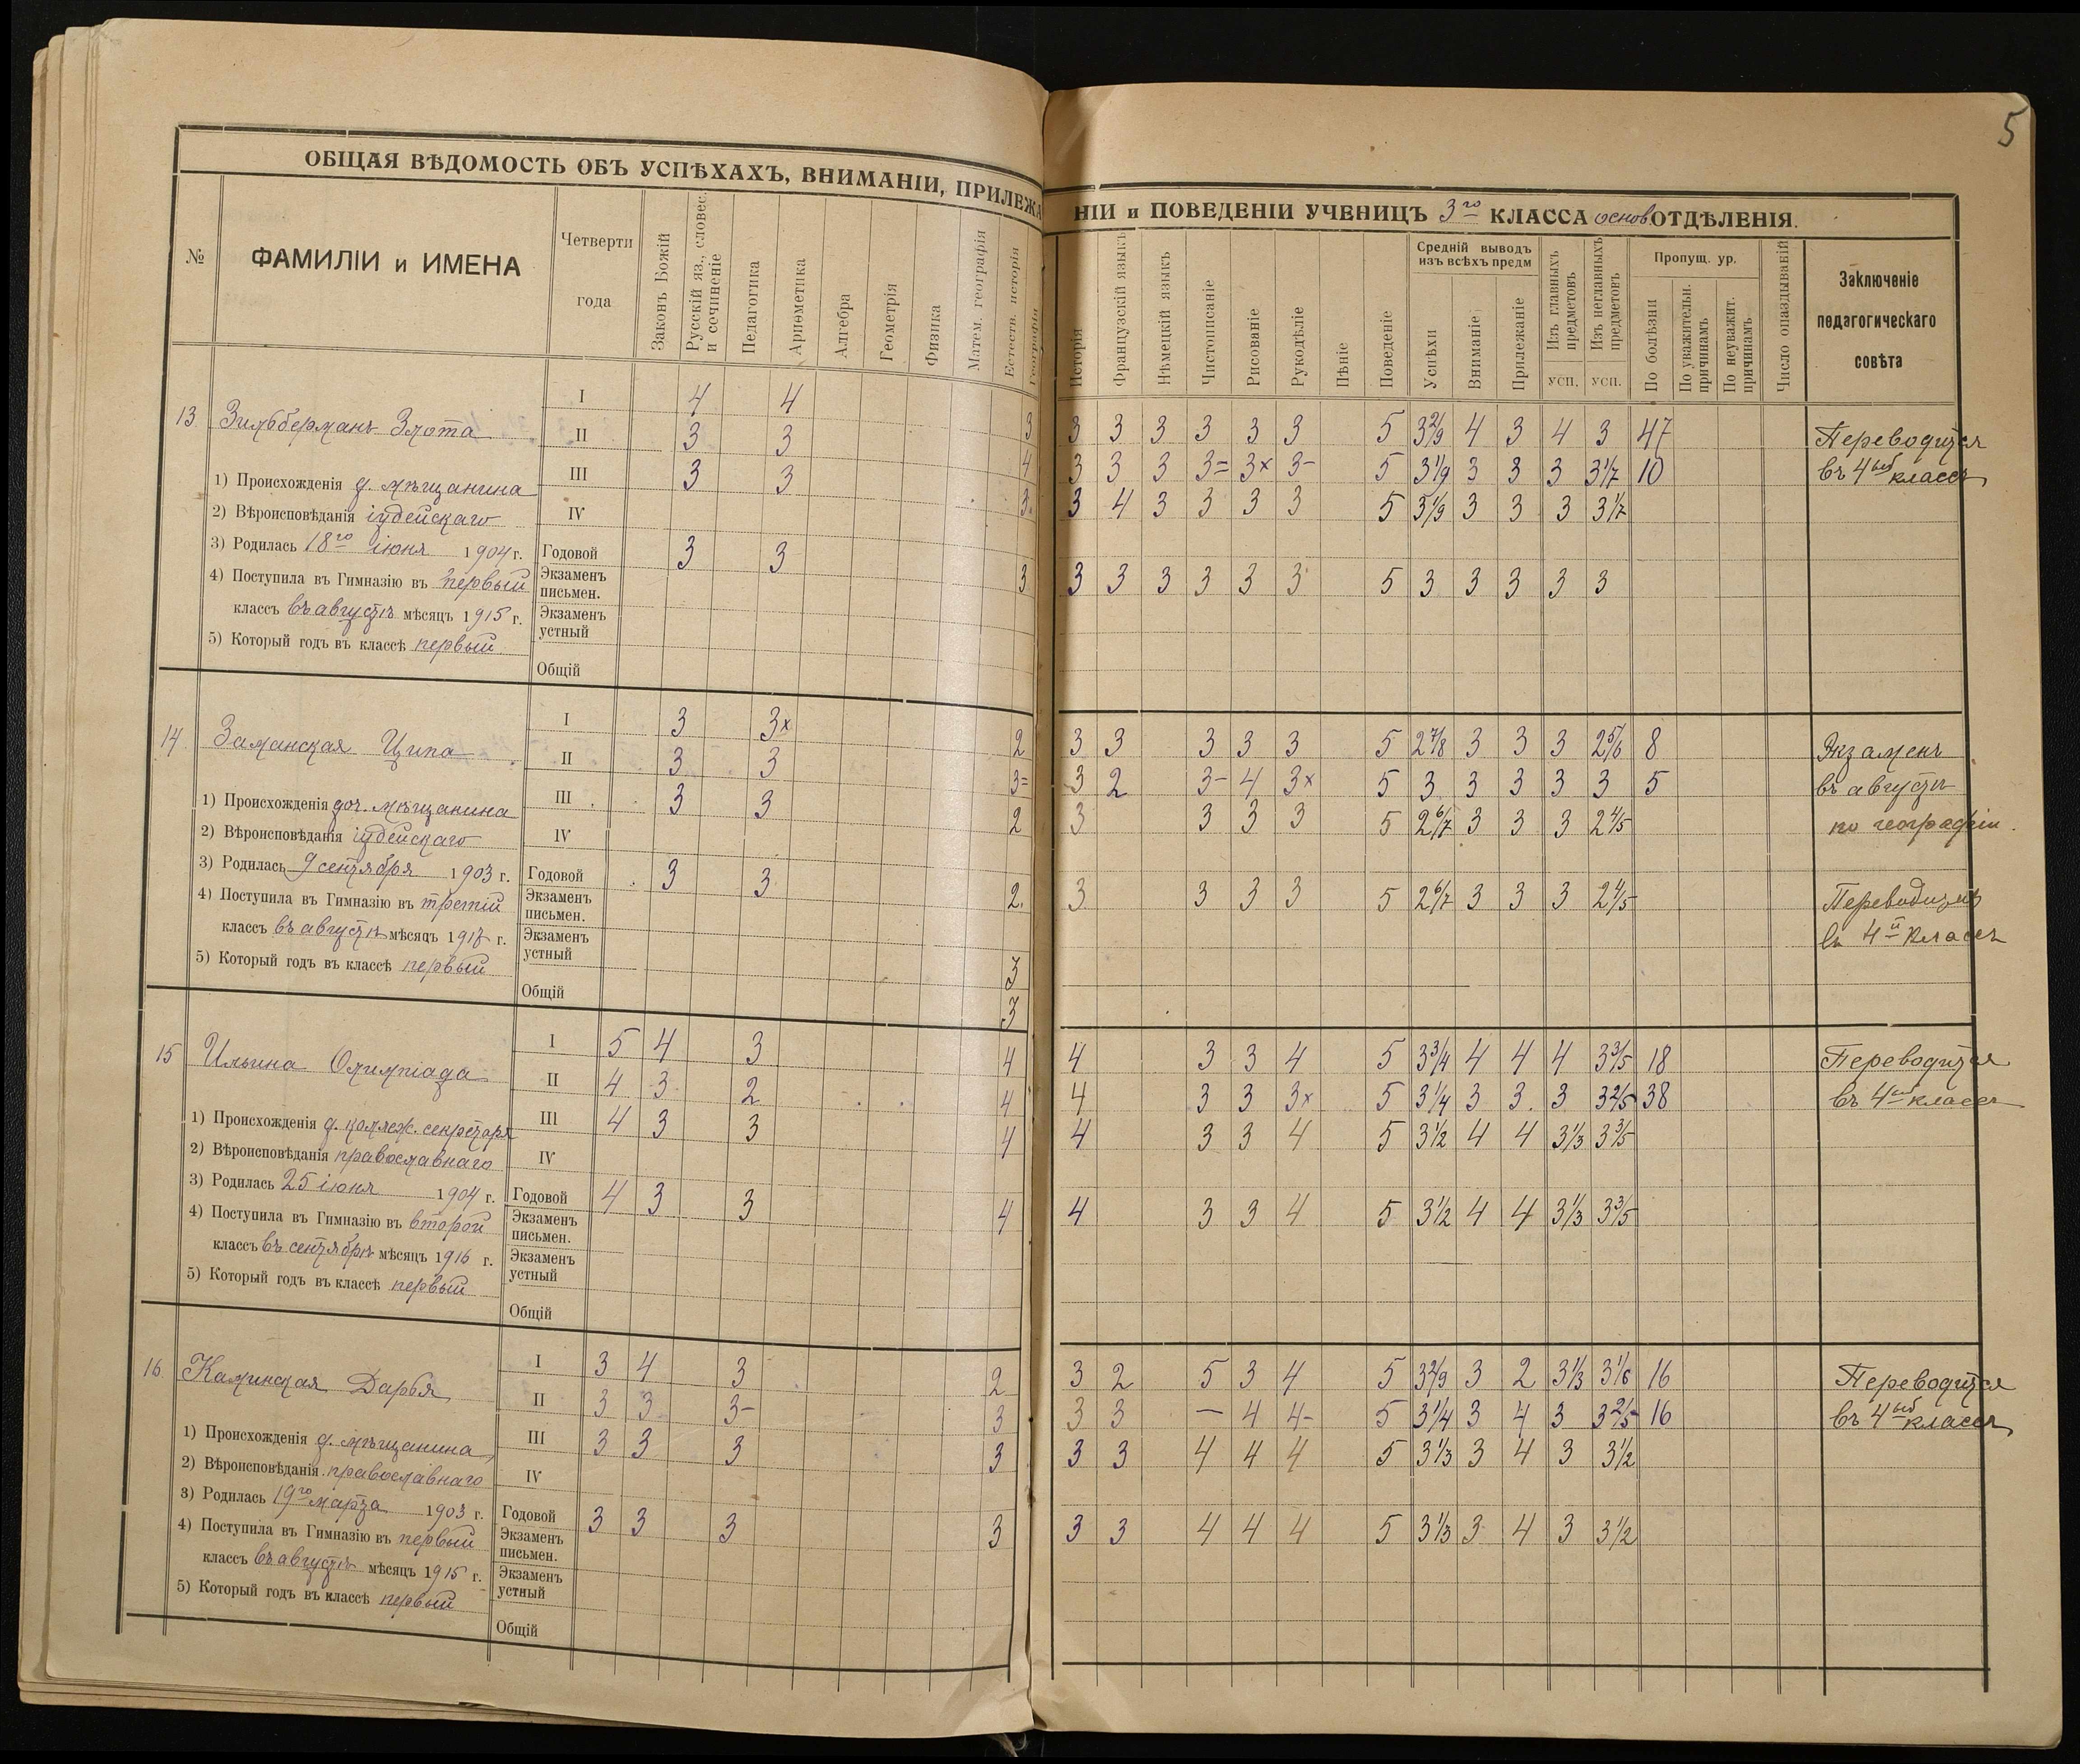 5
ОБЩАЯ ВѢДОМОСТЬ ОБЪ УСПѢХАХЪ, ВНИМАНІИ, ПРИЛЕЖА
НІИ и ПОВЕДЕНІИ УЧЕНИЦЪ 3го КЛАССА основ. ОТДѢЛЕНІЯ.
№
ФАМИЛІИ и ИМЕНА
Четверти
года
Законъ Божій
Русскій яз., словес.
и сочиненіе
Педагогика
Ариѳметика
Алгебра
Геометрія
Физика
Матем. географія
Естеств. исторія
Географія
Исторія
Французскій языкъ
Нѣмецкій языкъ
Чистописаніе
Рисованіе
Рукодѣліе
Пѣніе
Поведеніе
Средній выводъ
изъ всѣхъ предм
Успѣхи
Вниманіе
Прилежаніе
Изъ главныхъ
предметовъ
усп.
Изъ неглавныхъ
предметовъ
усп.
Пропущ. ур.
По болѣзни
По уважительн.
причинамъ
По неуважит.
причинамъ
Число опаздываній
Заключеніе
педагогическаго
совѣта
13 Зильберманъ Злота
1) Происхожденія д. мѣщанина
2) Вѣроисповѣданія іудейскаго
3) Родилась 18го іюня 1904 г.
4) Поступила въ Гимназію въ первый
классъ въ августѣ мѣсяцъ 1915 г.
5) Который годъ въ классѣ первый
I 4 4 3 3 3 3 3 3 3 5 3 2/9 4 3 4 3 47
II 3 3 4 3 3 3 3= 3× 3- 5 3 1/9 3 3 3 3 1/7 10
III 3 3 3. 3 4 3 3 3 3 5 3 1/9 3 3 3 3 1/7
IV
Годовой 3 3 3 3 3 3 3 3 3 5 3 3 3 3 3
Экзаменъ
письмен.
Экзаменъ
устный
Общій
Переводится
въ 4ый классъ
14. Заманская Ципа
1) Происхожденія доч. мѣщанина
2) Вѣроисповѣданія іудейскаго
3) Родилась 9 сентября 1903 г.
4) Поступила въ Гимназію въ третій
классъ въ августѣ мѣсяцъ 1917 г.
5) Который годъ въ классѣ первый
I 3 3× 2 3 3 3 3 3 5 2 7/8 3 3 3 2 5/6 8
II 3 3 3= 3 2 3- 4 3× 5 3 3 3 3 3 5
III 3 3 2 3 3 3 3 5 2 6/7 3 3 3 2 4/5
IV
Годовой 3 3 2. 3 3 3 3 5 2 6/7 3 3 3 2 4/5
Экзаменъ
письмен.
Экзаменъ
устный 3
Общій 3
Экзаменъ
въ августѣ
по географіи.
Переводится
въ 4й классъ
15 Ильина Олимпіада
1) Происхожденія д. коллеж. секретаря
2) Вѣроисповѣданія православнаго
3) Родилась 25 іюня 1904 г.
4) Поступила въ Гимназію въ второй
классъ въ сентябрѣ мѣсяцъ 1916 г.
5) Который годъ въ классѣ первый
I 5 4 3 4 4 3 3 4 5 3 3/4 4 4 4 3 3/5 18
II 4 3 2 4 4 3 3 3× 5 3 1/4 3 3. 3 3 2/5 38
III 4 3 3 4 4 3 3 4 5 3 1/2 4 4 3 1/3 3 3/5
IV
Годовой 4 3 3 4 4 3 3 4 5 3 1/2 4 4 3 1/3 3 3/5
Экзаменъ
письмен.
Экзаменъ
устный
Общій
Переводится
въ 4ый классъ
16. Каминская Дарья
1) Происхожденія д. мѣщанина,
2) Вѣроисповѣданія православнаго
3) Родилась 19го марта 1903 г.
4) Поступила въ Гимназію въ первый
классъ въ августѣ мѣсяцъ 1915 г.
5) Который годъ въ классѣ первый
I 3 4 3 2 3 2 5 3 4 5 3 2/9 3 2 3 1/3 3 1/6 16
II 3 3 3- 3 3 3 — 4 4- 5 3 1/4 3 4 3 3 2/5 16
III 3 3 3 3 3 3 4 4 4 5 3 1/3 3 4 3 3 1/2
IV
Годовой 3 3 3 3 3 3 4 4 4 5 3 1/3 3 4 3 3 1/2
Экзаменъ
письмен.
Экзаменъ
устный
Общій
Переводится
въ 4ый классъ